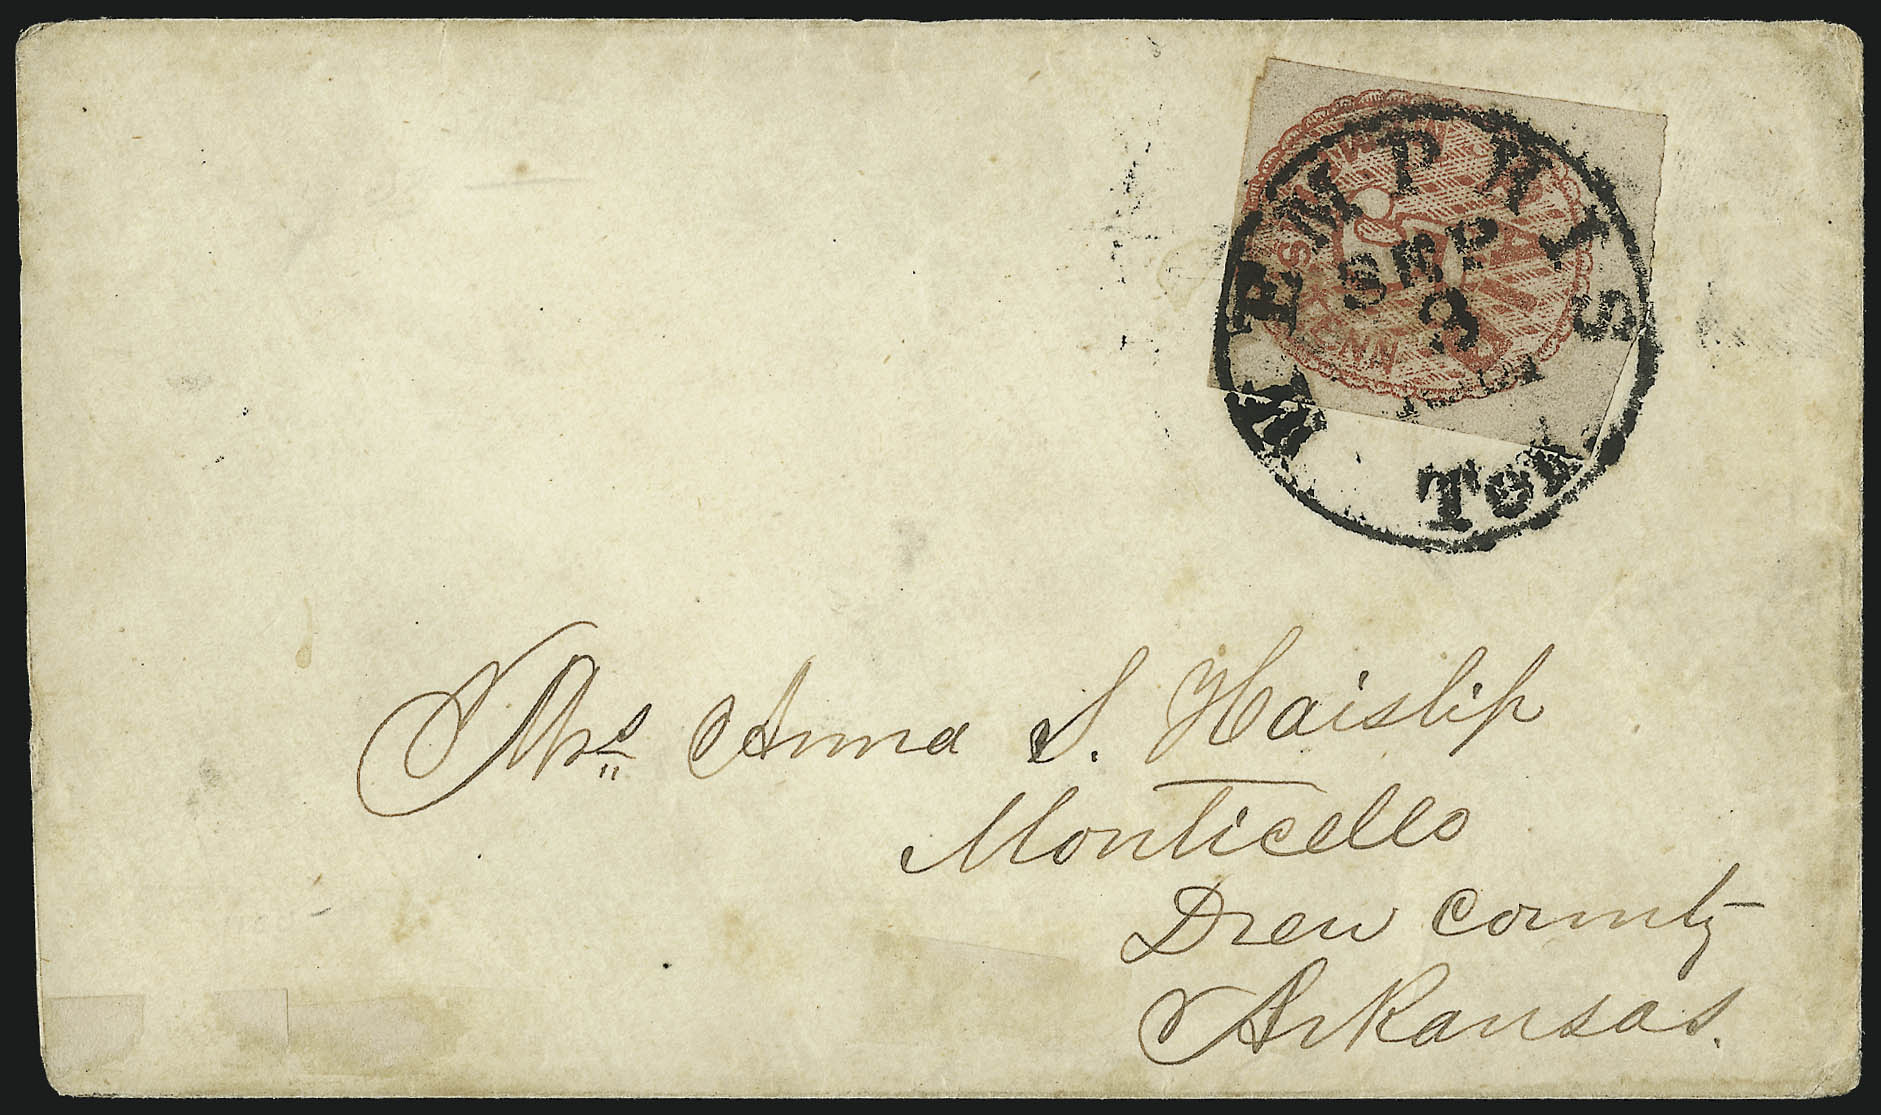 MEMPHIS
SEP
3
Ten.
PAID
TENN
Mrs Anna S. Haislip
Monticello
Drew County
Arkansas.